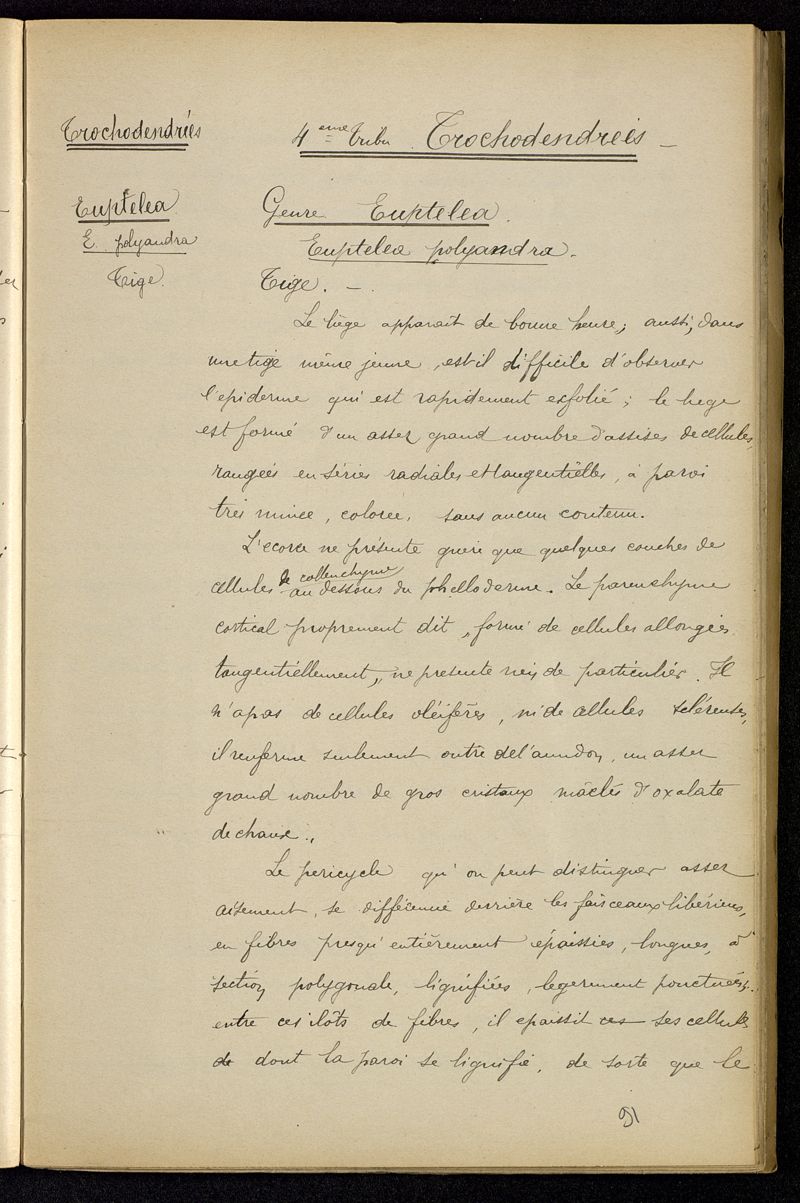 Trochodendrées
4ème Tribu Trochodendrées
Euptelea
E. polyandra
Tige.
Genre Euptelea.
Euptelea polyandra.
Tige. —
Le liège apparait de bonne heure; aussi, dans
une tige même jeune, est-il difficile d'observer
l'epiderme qui est rapidement exfolié; le liege
est formé d'un assez grand nombre d'assises de cellules,
rangées en séries radiales et tangentielles, à paroi
très mince, colorée, sans aucun contenu.
L'ecorce ne présente guère que quelques couches de
cellules de collenchyme au dessous du phelloderme. Le parenchyme
cortical proprement dit, formé de cellules allongées
tangentiellement, ne presente rien de particulier. Il
n'a pas de cellules oléifères, ni de cellules scléreuses,
il renferme seulement outre de l'amidon, un assez
grand nombre de gros cristaux mâclés d'oxalate
de chaux.
Le pericycle qu'on peut distinguer assez
aisement, se différencie derrière les faisceaux libériens,
en fibres presqu'entièrement épaissies, longues, à
section polygonale, lignifiées, legerement ponctuées;
entre ces ilots de fibres, il epaissit ces ses cellules
de dont la paroi se lignifie, de sorte que le